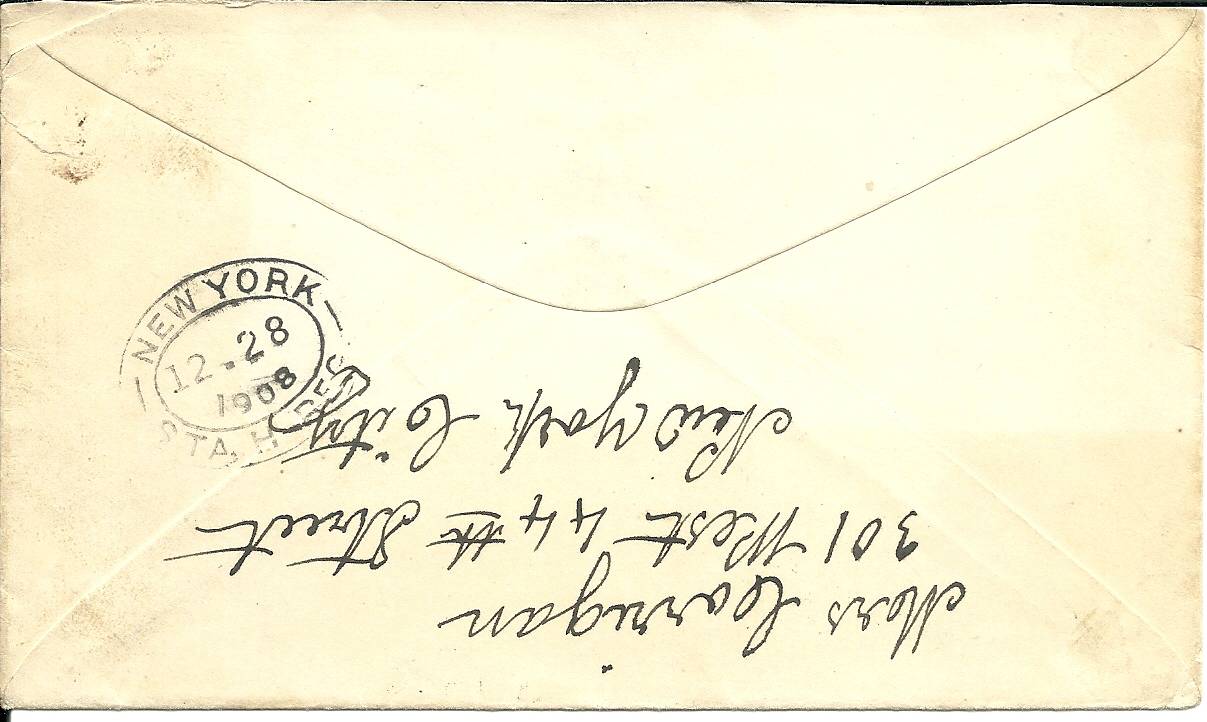 NEW YORK
12-28
1908
STA. H. REC'D
Mrs Corrigan
301 West 44th Street
New York City